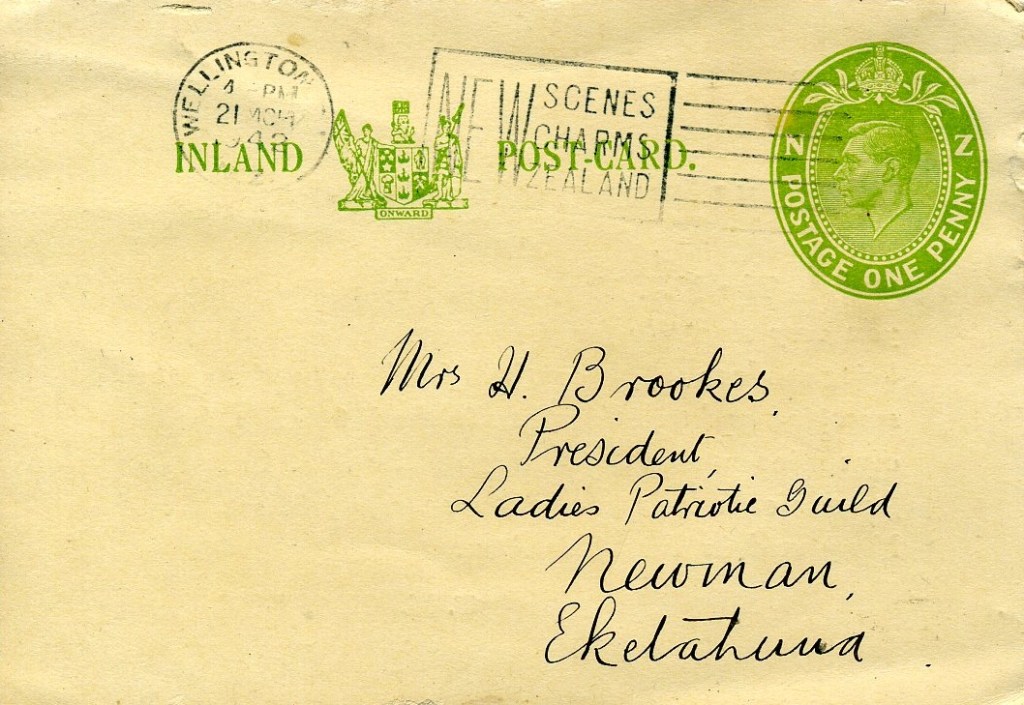 WELLINGTON
4 - PM
21
1942
NEW SCENES
NEW CHARMS
ZEALAND
INLAND POST-CARD.
ONWARD
N Z
POSTAGE ONE PENNY
Mrs H. Brookes,
President,
Ladies Patriotic Guild
Newman,
Eketahuna